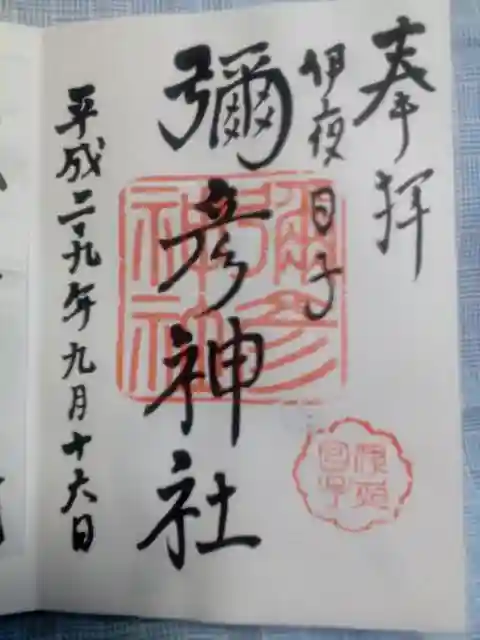 奉拝
伊夜日子
彌彦神社
平成二十九年九月十六日
彌彦神社